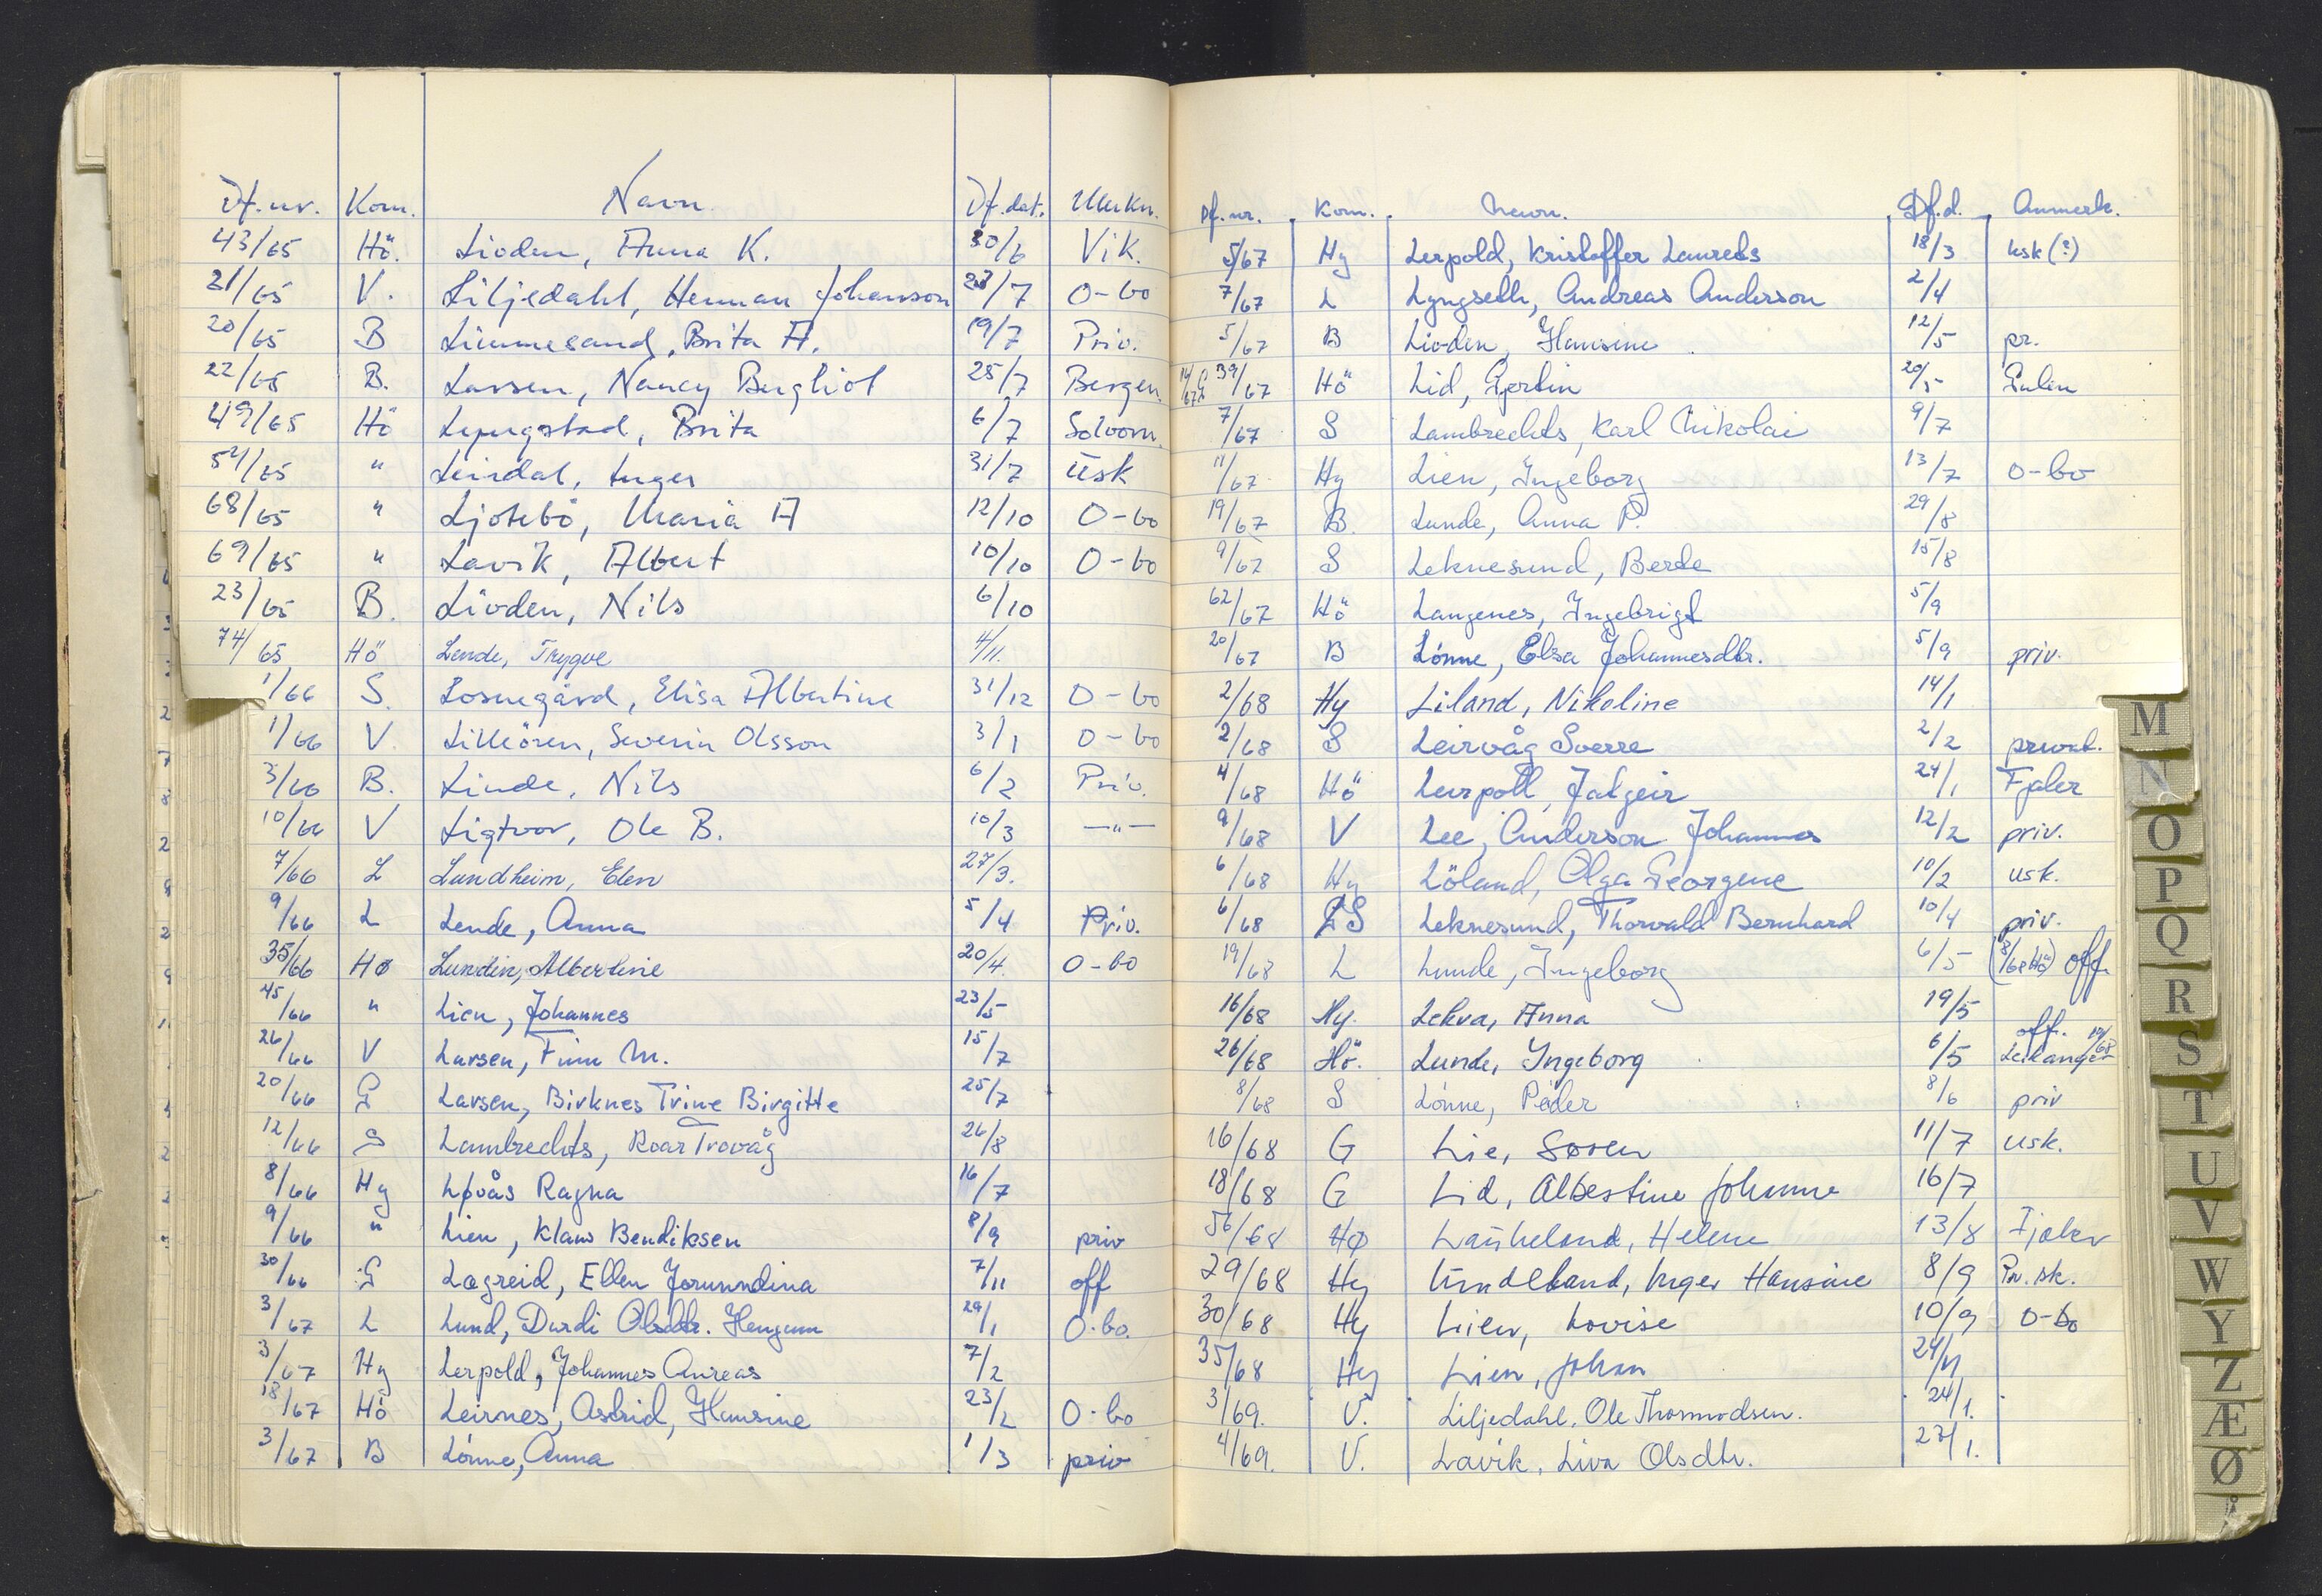 Df.nr. Kom. Navn Df.dat. Merkn.
43/65 Hö. Lioden, Anna K. 30/6 Vik.
21/65 V. Liljedahl, Herman Johanson 23/7 O-bo
20/65 B Limmesand, Brita A. 19/7 Priv.
22/65 B. Larsen, Nancy Bergliot 25/7 Bergen.
49/65 Hö Lyngstad, Brita 6/7 Solvorn.
54/65 " Leirdal, Inger 31/7 Usk
68/65 " Ljotebö, Maria A 12/10 O-bo
69/65 " Lavik, Albert 10/10 O-bo
23/65 B. Lioden, Nils 6/10
74/65 Hö Lende, Trygve 4/11.
1/66 S. Losnegård, Elisa Albertine 31/12 O-bo
1/66 V. Lilleören, Severin Olsson 3/1 O-bo
3/66 B. Linde, Nils 6/2 Priv.
10/66 V Ligtvor, Ole B. 10/3 -"-
7/66 L Lundheim, Elen 27/3.
9/66 L Lende, Anna 5/4 Priv.
35/66 Hø Lundin, Albertine 20/4. O-bo
45/66 " Lien, Johannes 23/5
26/66 V Larsen, Finn M. 15/7
20/66 G Larsen, Birknes Trine Birgitte 25/7
12/66 S Lambrechts, Roar Trovåg 26/8
8/66 Hy Løvås Ragna 16/7
9/66 " Lien, Klaus Bendiksen 8/9 priv
30/66 G Lægreid, Ellen Jorunndina 7/11 off
3/67 L Lund, Durdi Olsdtr. Hengum 29/1 O-bo.
3/67 Hy Lerpold, Johannes Aureas 7/2
18/67 Hö Leirnes, Astrid, Hansine 23/2 O-bo
3/67 B Lönne, Anna 1/3 priv
Df.nr. Kom. Navn. Df.d. Anmerk.
5/67 Hy Lerpold, Kristoffer Laurets 18/3 usk (?)
7/67 L Lyngseth, Andreas Anderson 2/4
5/67 B Lioden, Hansine 12/5 pr.
39/67 Hö Lid, Gjertin 20/5 Gulen
7/67 S Lambrechts, Karl Nikolai 9/7
11/67 Hy Lien, Ingeborg 13/7 O-bo
19/67 B. Lunde, Anna P. 29/8
9/67 S Leknesund, Berte 15/8
62/67 Hö Langenes, Ingebrigt 5/9
20/67 B Lönne, Elsa Johannesdtr. 5/9 priv.
2/68 Hy Liland, Nikoline 14/1
2/68 S Leirvåg Sverre 2/2 privat.
4/68 Hö Leirpoll, Jalgeir 24/1 Fjaler
9/68 V Lee, Anderson Johannes 12/2 priv.
6/68 Hy Löland, Olga Georgene 10/2 usk.
6/68 S Leknesund, Thorvald Bernhard 10/4 priv.
19/68 L Lunde, Ingeborg 6/5 off.
16/68 Hy. Lekva, Anna 19/5
26/68 Hö. Lunde, Ingeborg 6/5 off. 19/68 Leikanger
8/68 S Lönne, Peder 8/6 priv
16/68 G Lie, Søren 11/7 usk.
18/68 G Lid, Albestine Johanne 16/7
56/68 Hø Lauheland, Helene 13/8 Fjaler
29/68 Hy Inger Hansine 8/9 Pr. sk.
30/68 Hy Lien, Lovise 10/9 O-bo
35/68 Hy Lien, Johan 24/11
3/69. V. Liljedahl, Ole Thormodsen. 24/1.
4/69. V. Lavik, Liva Olsdtr. 27/1.
M
N
O
P
Q
R
S
T
U
V
W
Y
Z
Æ
Ø
Å